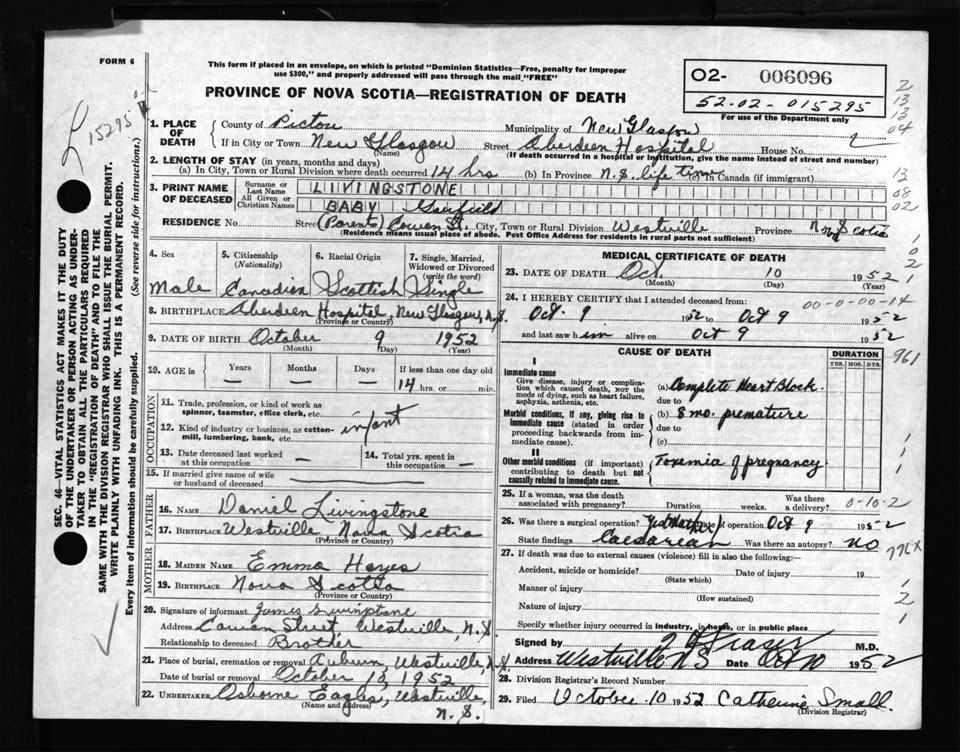 FORM 6
This form if placed in an envelope, on which is printed "Dominion Statistics—Free, penalty for improper
use $300," and properly addressed will pass through the mail "FREE"
PROVINCE OF NOVA SCOTIA—REGISTRATION OF DEATH
02- 006096
52-02-015295
For use of the Department only
15295
2
13
13
04
13
08
02
1
0
2
1
961
SEC. 46—VITAL STATISTICS ACT MAKES IT THE DUTY
OF THE UNDERTAKER OR PERSON ACTING AS UNDER-
TAKER TO OBTAIN ALL THE PARTICULARS REQUIRED
IN THE "REGISTRATION OF DEATH" AND TO FILE THE
SAME WITH THE DIVISION REGISTRAR WHO SHALL ISSUE THE BURIAL PERMIT.
WRITE PLAINLY WITH UNFADING INK. THIS IS A PERMANENT RECORD.
Every item of information should be carefully supplied. (See reverse side for instructions.)
1. PLACE OF DEATH
County of Pictou Municipality of New Glasgow
If in City or Town New Glasgow Street Aberdeen Hospital House No.
(Name) (If death occurred in a hospital or institution, give the name instead of street and number)
2. LENGTH OF STAY (in years, months and days)
(a) In City, Town or Rural Division where death occurred 14 hrs (b) In Province N.S. life time (c) Canada (if immigrant)
3. PRINT NAME OF DECEASED
Surname or Last Name LIVINGSTONE
All Given or Christian Names BABY Garfield
RESIDENCE No. Street (Parents) Cowan St. City, Town or Rural Division Westville Province Nova Scotia
(Residence means usual place of abode. Post Office Address for residents in rural parts not sufficient)
4. Sex 5. Citizenship (Nationality) 6. Racial Origin 7. Single, Married, Widowed or Divorced (write the word)
Male Canadian Scottish Single
8. BIRTHPLACE Aberdeen Hospital, New Glasgow, N.S.
(Province or Country)
9. DATE OF BIRTH October 9 1952
(Month) (Day) (Year)
10. AGE in Years Months Days If less than one day old
— — — 14 hrs. or min.
OCCUPATION
11. Trade, profession, or kind of work as
spinner, teamster, office clerk, etc.
12. Kind of industry or business, as cotton-
mill, lumbering, bank, etc. infant
13. Date deceased last worked
at this occupation —
14. Total years spent in
this occupation —
15. If married give name of wife
or husband of deceased
FATHER
16. Name Daniel Livingstone
17. Birthplace Westville Nova Scotia
(Province or Country)
MOTHER
18. MAIDEN NAME Emma Hayes
19. Birthplace Nova Scotia
(Province or Country)
20. Signature of informant James Livingstone
Address Cowan Street, Westville, N.S.
Relationship to deceased Brother
21. Place of burial, cremation or removal Auburn, Westville, N.S.
Date of burial or removal October 10, 1952
22. UNDERTAKER Osborne Eagles, Westville,
(Name and address)
N.S.
MEDICAL CERTIFICATE OF DEATH
23. DATE OF DEATH Oct. 10 1952
(Month) (Day) (Year)
24. I HEREBY CERTIFY that I attended deceased from: 00-0-00-14
Oct. 9 1952 to Oct 9 1952
and last saw him alive on Oct 9 1952
CAUSE OF DEATH DURATION
YRS. MOS. DYS.
I
Immediate cause
Give disease, injury or complica-
tion which caused death, NOT the
mode of dying, such as heart failure,
asphyxia, asthenia, etc.
(a) Complete Heart Block.
due to
Morbid conditions, if any, giving rise to
immediate cause (stated in order
proceeding backwards from im-
mediate cause).
(b) 8 mo. premature
due to
(c)
II
Other morbid conditions (if important)
contributing to death but not
causally related to immediate cause.
Toxemia of pregnancy
25. If a woman, was the death
associated with pregnancy? Duration weeks. Was there a delivery? 0-10-2
26. Was there a surgical operation? Yes (Mother) Date of operation Oct 9 1952
State findings Caesarean Was there an autopsy? NO
776X
27. If death was due to external causes (violence) fill in also the following:—
Accident, suicide or homicide? Date of injury 19
(State which)
Manner of injury
(How sustained)
Nature of injury
Specify whether injury occurred in industry, in home, or in public place
Signed by Fraser M.D.
Address Westville NS Date Oct 10 1952
28. Division Registrar's Record Number
29. Filed October 10 1952 Catherine Small.
(Division Registrar)